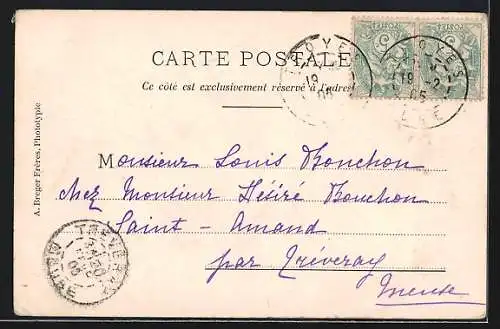 TROYES
19
05
TROYES
19 -2
05
AUBE
POSTES
POSTES
CARTE POSTALE
Ce côté est exclusivement réservé à l'adresse
A. Breger Frères, Phototypie
Monsieur Louis Bouchon
Chez Monsieur Désiré Bouchon
Saint-Amand
par Tréveray
Meuse
TREVERAY
20
05
MEUSE